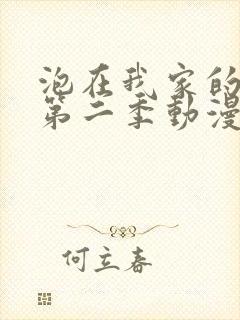 泡在我家的
第二季動漫
何立春